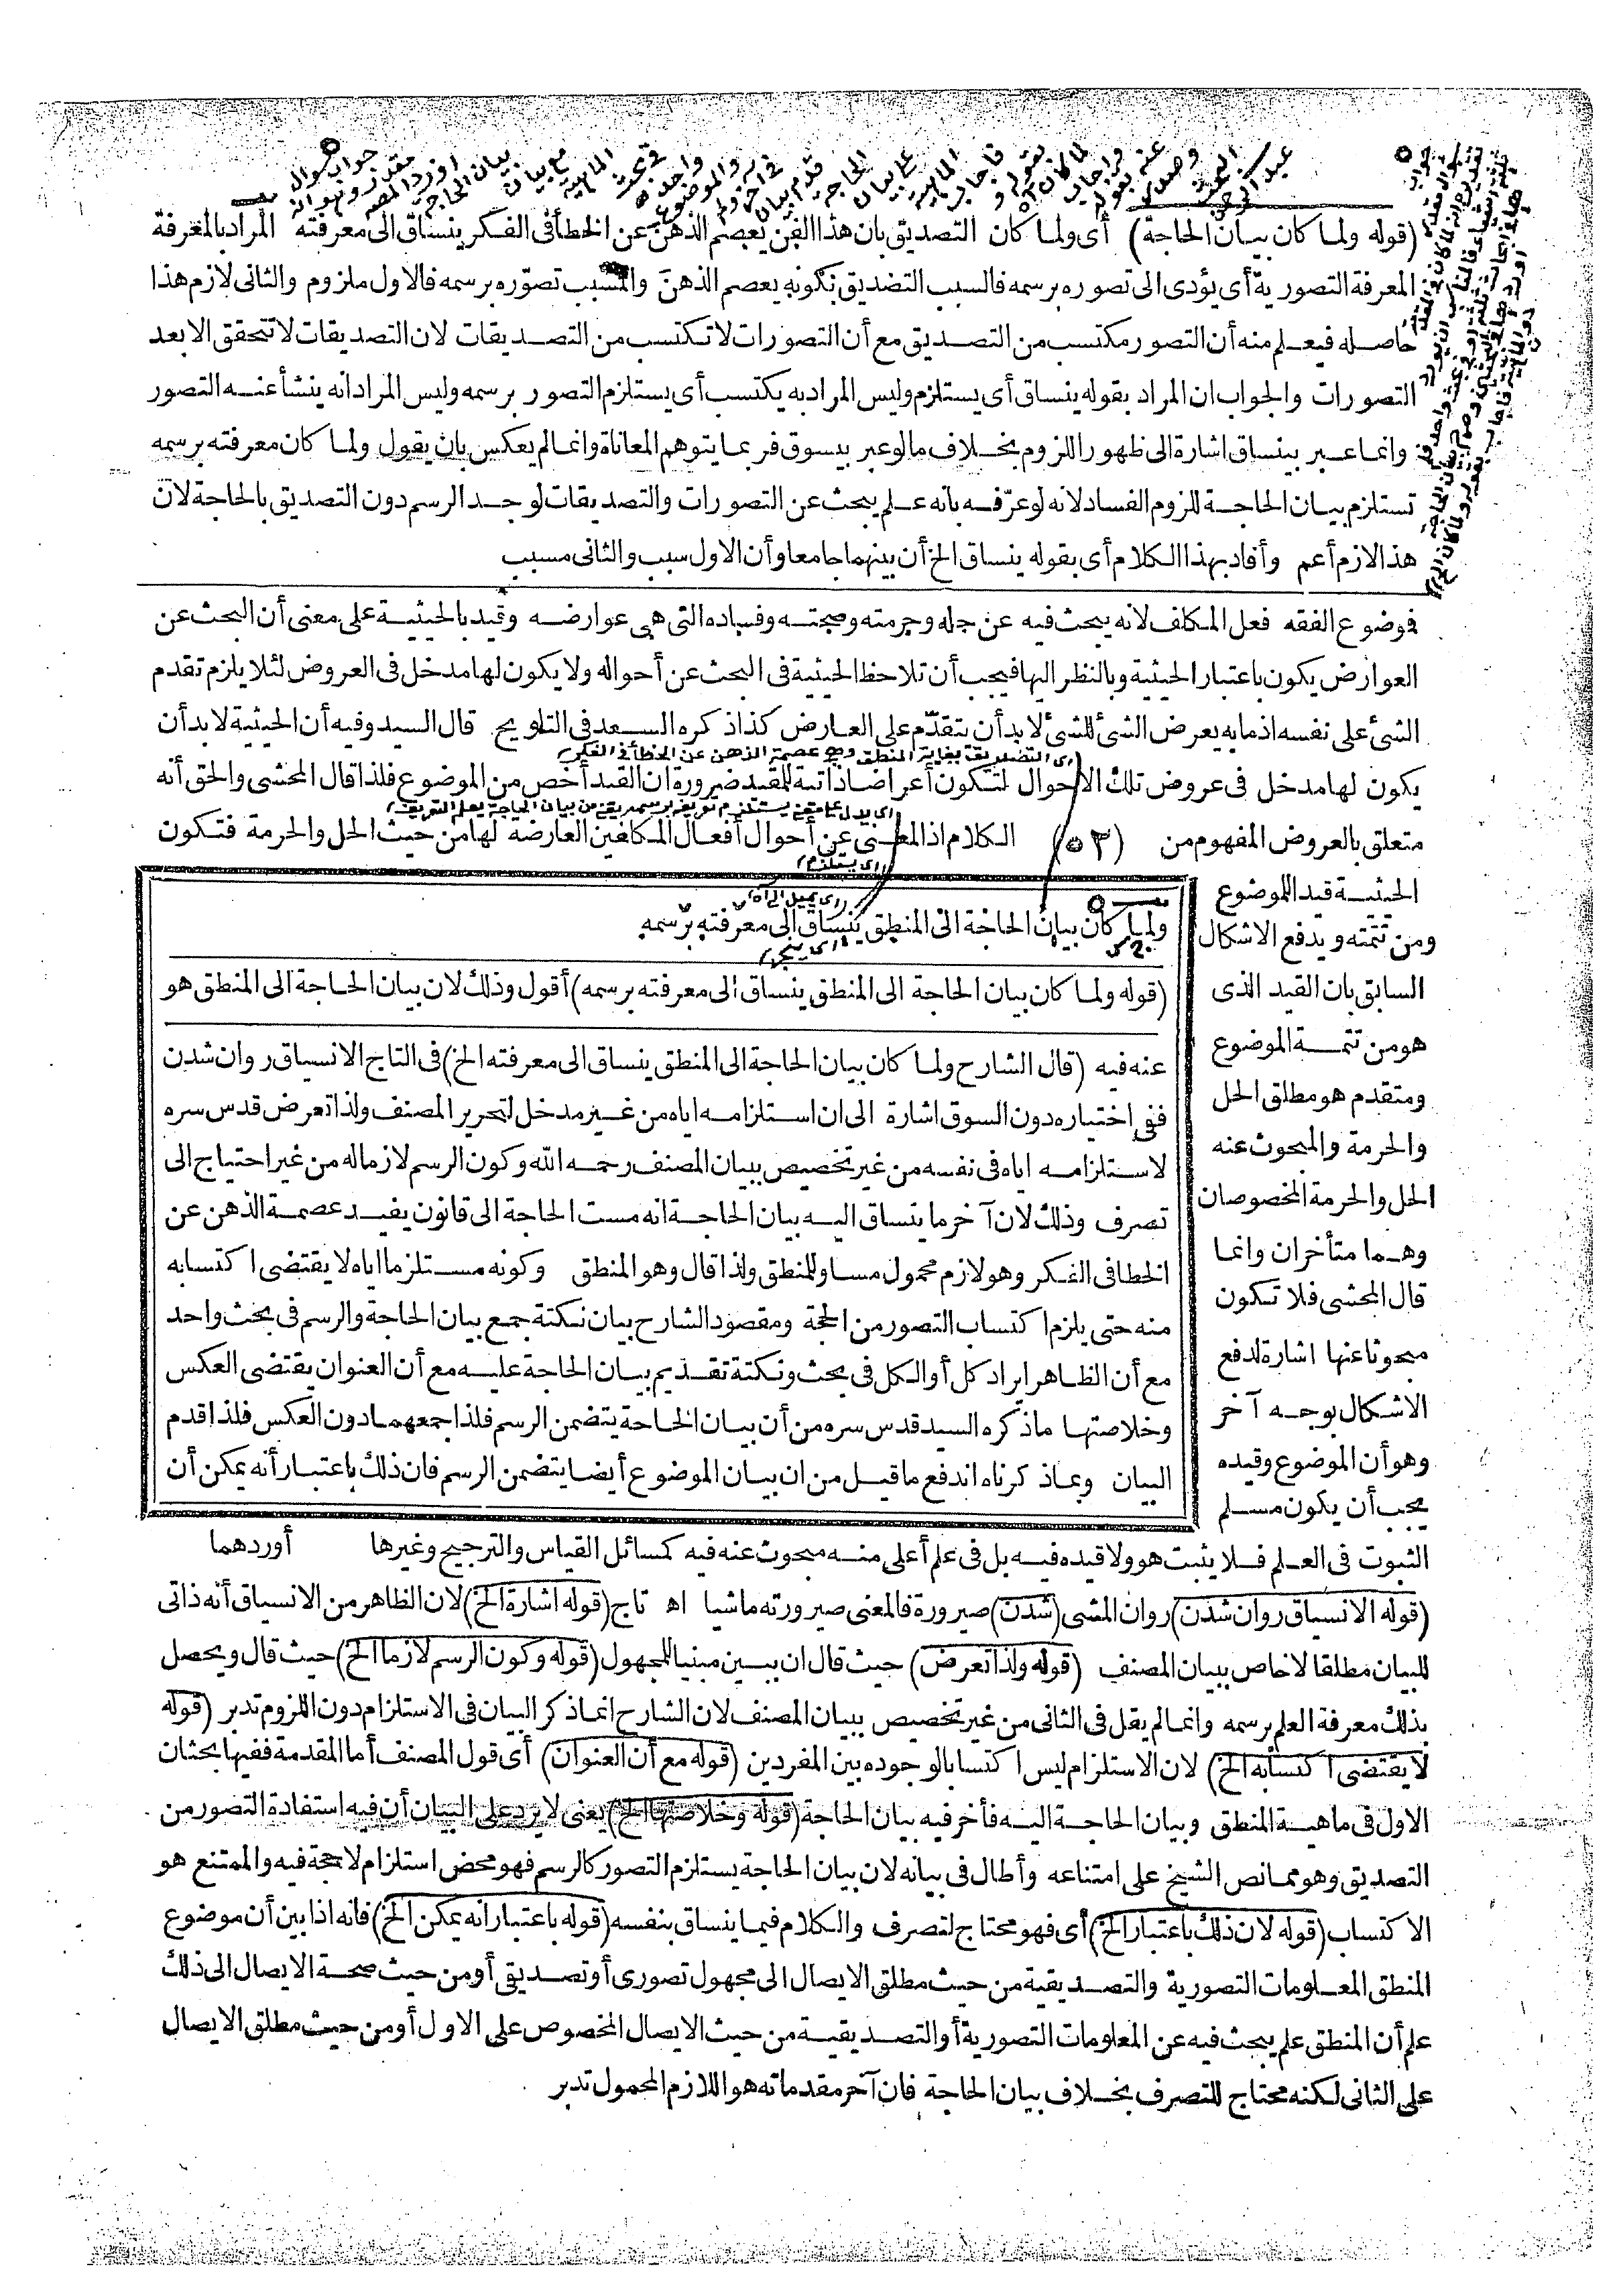 (قوله ولما كان بيان الحاجة) أى ولما كان التصديق بان هذا الفن يعصم الذهن عن الخطأ فى الفكر ينساق الى معرفته المراد بالمعرفة
المعرفة التصورية أى يؤدى الى تصوره برسمه فالسبب التصديق بكونه يعصم الذهن والمسبب تصوّره برسمه فالاول ملزوم والثانى لازم هذا
حاصله فيعلم منه أن التصور مكتسب من التصديق مع أن التصورات لا تكتسب من التصديقات لان التصديقات لا تتحقق الا بعد
التصورات والجواب ان المراد بقوله ينساق أى يستلزم وليس المراد به يكتسب أى يستلزم التصور برسمه وليس المراد انه ينشأ عنه التصور
وانما عبر بينساق اشارة الى ظهور اللزوم بخلاف ما لو عبر بيسوق فربما يتوهم المعاناة وانما لم يعكس بان يقول ولما كان معرفته برسمه
تستلزم بيان الحاجة للزوم الفساد لانه لو عرّفه بانه علم يبحث عن التصورات والتصديقات لوجد الرسم دون التصديق بالحاجة لان
هذا لازم أعم وأفاد بهذا الكلام أى بقوله ينساق الخ أن بينهما جامعا وأن الاول سبب والثانى مسبب
فوضوع الفقه فعل المكلف لانه يبحث فيه عن حله وحرمته وصحته وفساده التى هى عوارضه وقيد بالحيثية على معنى أن البحث عن
العوارض يكون باعتبار الحيثية وبالنظر اليها فيجب أن تلاحظ الحيثية فى البحث عن أحواله ولا يكون لها مدخل فى العروض لئلا يلزم تقدم
الشئ على نفسه اذ ما به يعرض الشئ للشئ لا بد أن يتقدّم على العارض كذا ذكره السعد فى التلويح قال السيد وفيه أن الحيثية لا بد أن
أى التصديق بغاية المنطق وهو عصمة الذهن عن الخطأ فى الفكر
يكون لها مدخل فى عروض تلك الاحوال لتكون أعراضا ذاتية للمقيد ضرورة ان القيد أخص من الموضوع فلذا قال المحشى والحق أنه
متعلق بالعروض المفهوم من (٥٣) الكلام اذ المعنى عن أحوال أفعال المكلفين العارضه لها من حيث الحل والحرمة فتكون
الحيثية قيد اللموضوع
ومن تتمته ويدفع الاشكال
السابق بان القيد الذى
هو من تتمة الموضوع
ومتقدم هو مطلق الحل
والحرمة والمبحوث عنه
الحل والحرمة المخصوصان
وهما متأخران وانما
قال المحشى فلا تكون
مبحوثا عنها اشارة لدفع
الاشكال بوجه آخر
وهو أن الموضوع وقيده
يجب أن يكون مسلم
أى يستلزم
ولما كان بيان الحاجة الى المنطق ينساق الى معرفته برسمه
(قوله ولما كان بيان الحاجة الى المنطق ينساق الى معرفته برسمه) أقول وذلك لان بيان الحاجة الى المنطق هو
عنه فيه (قال الشارح ولما كان بيان الحاجة الى المنطق ينساق الى معرفته الخ) فى التاج الانسياق روان شدن
ففى اختياره دون السوق اشارة الى ان استلزامه اياه من غير مدخل لتحرير المصنف ولذا تعرض قدس سره
لاستلزامه اياه فى نفسه من غير تخصيص ببيان المصنف رحمه الله وكون الرسم لازما له من غير احتياج الى
تصرف وذلك لان آخر ما ينساق اليه بيان الحاجة انه مست الحاجة الى قانون يفيد عصمة الذهن عن
الخطا فى الفكر وهو لازم محمول مساو للمنطق ولذا قال وهو المنطق وكونه مستلزما اياه لا يقتضى اكتسابه
منه حتى يلزم اكتساب التصور من الحجة ومقصود الشارح بيان نكتة جمع بيان الحاجة والرسم فى بحث واحد
مع أن الظاهر ايراد كل أو الكل فى بحث ونكتة تقديم بيان الحاجة عليه مع أن العنوان يقتضى العكس
وخلاصتها ما ذكره السيد قدس سره من أن بيان الحاجة يتضمن الرسم فلذا جمعهما دون العكس فلذا قدم
البيان وبما ذكرناه اندفع ما قيل من ان بيان الموضوع أيضا يتضمن الرسم فان ذلك باعتبار أنه يمكن أن
الثبوت فى العلم فلا يثبت هو ولا قيده فيه بل فى علم أعلى منه مبحوث عنه فيه كمسائل القياس والترجيح وغيرها أوردهما
(قوله الانسياق روان شدن) روان المشى (شدن) صيرورة فالمعنى صيرورته ماشيا اه تاج (قوله اشارة الخ) لان الظاهر من الانسياق أنه ذاتى
للبيان مطلقا لا خاص ببيان المصنف (قوله ولذا تعرض) حيث قال ان ببين مبنيا للمجهول (قوله وكون الرسم لازما الخ) حيث قال ويحصل
بذلك معرفة العلم برسمه وانما لم يقل فى الثانى من غير تخصيص ببيان المصنف لان الشارح انما ذكر البيان فى الاستلزام دون اللزوم تدبر (قوله
لا يقتضى اكتسابه الخ) لان الاستلزام ليس اكتسابا لوجوده بين المفردين (قوله مع أن العنوان) أى قول المصنف أما المقدمة ففيها بحثان
الاول فى ماهية المنطق وبيان الحاجة اليه فأخر فيه بيان الحاجة (قوله وخلاصتها الخ) يعنى لا يرد على البيان أن فيه استفادة التصور من
التصديق وهو مما نص الشيخ على امتناعه وأطال فى بيانه لان بيان الحاجة يستلزم التصور كالرسم فهو محض استلزام لا حجة فيه والممتنع هو
الاكتساب (قوله لان ذلك باعتبار الخ) أى فهو محتاج لتصرف والكلام فيما ينساق بنفسه (قوله باعتبار انه يمكن الخ) فانه اذا بين أن موضوع
المنطق المعلومات التصورية والتصديقية من حيث مطلق الايصال الى مجهول تصورى أو تصديقى أو من حيث صحة الايصال الى ذلك
علم أن المنطق علم يبحث فيه عن المعلومات التصورية أو التصديقية من حيث الايصال المخصوص على الاول أو من حيث مطلق الايصال
على الثانى لكنه محتاج للتصرف بخلاف بيان الحاجة فان آخر مقدماته هو اللازم المحمول تدبر